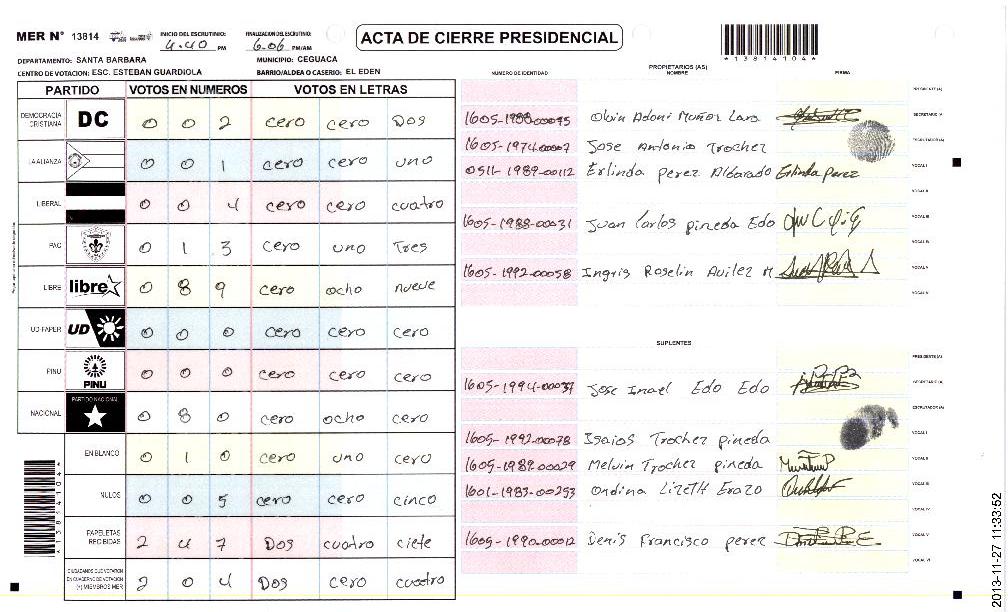 MER N° 13814 INICIO DEL ESCRUTINIO: 4:40 PM FINALIZACION DEL ESCRUTINIO: 6:06 PM/AM
ACTA DE CIERRE PRESIDENCIAL
*13814104*
DEPARTAMENTO: SANTA BARBARA MUNICIPIO: CEGUACA
CENTRO DE VOTACION: ESC. ESTEBAN GUARDIOLA BARRIO/ALDEA O CASERIO: EL EDEN
NUMERO DE IDENTIDAD PROPIETARIOS (AS) NOMBRE FIRMA
PARTIDO VOTOS EN NUMEROS VOTOS EN LETRAS
DEMOCRACIA CRISTIANA DC 0 0 2 cero cero Dos
LA ALIANZA 0 0 1 cero cero uno
LIBERAL 0 0 4 cero cero cuatro
PAC 0 1 3 cero uno Tres
LIBRE libre 0 8 9 cero ocho nueve
UD-FAPER UD 0 0 0 cero cero cero
PINU PINU 0 0 0 cero cero cero
NACIONAL PARTIDO NACIONAL 0 8 0 cero ocho cero
EN BLANCO 0 1 0 cero uno cero
NULOS 0 0 5 cero cero cinco
PAPELETAS RECIBIDAS 2 4 7 Dos cuatro ciete
CIUDADANOS QUE VOTARON EN CUADERNO DE VOTACION (+) MIEMBROS MER 2 0 4 Dos cero cuatro
*13814104*
PRESIDENTE (A)
Olvin Adoni Muñoz Lara SECRETARIO (A)
1605-1974-00007 Jose Antonio Trochez ESCRUTADOR (A)
0511-1989-00112 Erlinda perez Albarado Erlinda perez VOCAL I
VOCAL II
1605-1988-00031 Juan Carlos pineda Edo VOCAL III
VOCAL IV
1605-1992-00058 Ingris Roselin Avilez M. VOCAL V
VOCAL VI
SUPLENTES
PRESIDENTE (A)
1605-1994-00037 Jose Inael Edo Edo SECRETARIO (A)
ESCRUTADOR (A)
1605-1992-00078 Isaias Trochez pineda VOCAL I
1605-1989-00029 Melvin Trochez pineda VOCAL II
1601-1983-00293 Ondina Lizeth Erazo VOCAL III
VOCAL IV
1605-1990-00012 Denis Francisco perez VOCAL V
VOCAL VI
2013-11-27 11:33:52